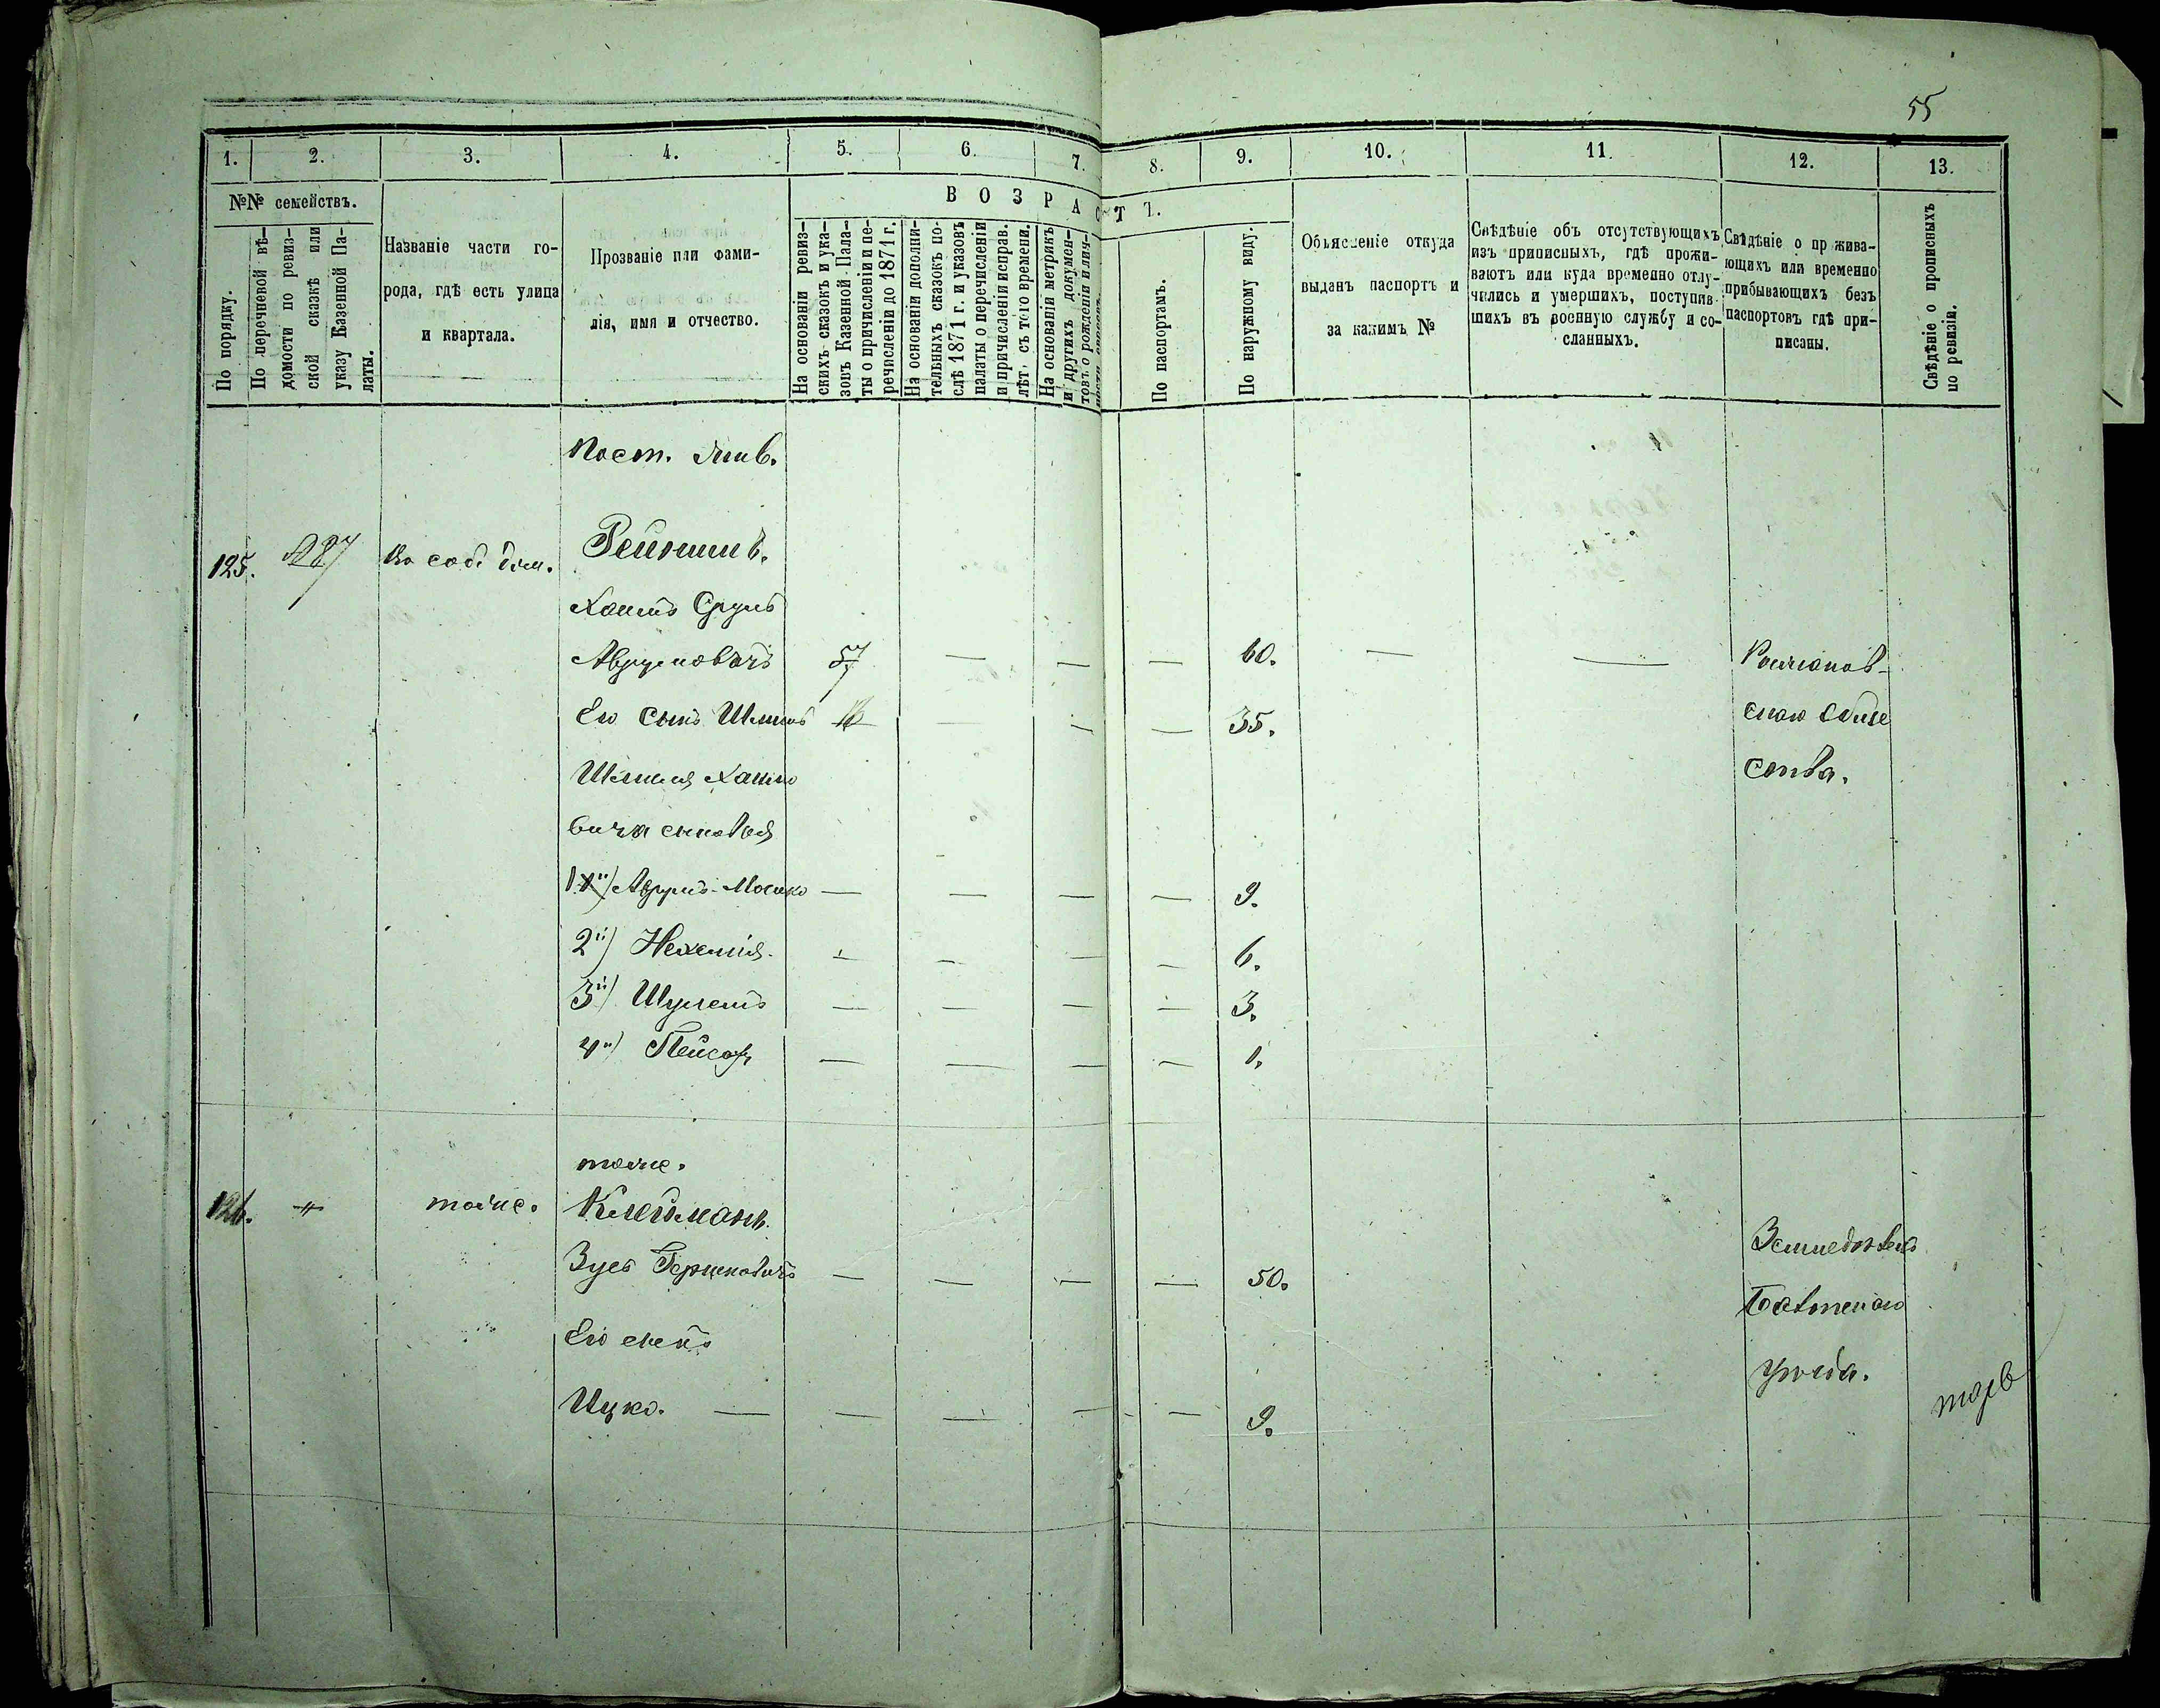 55
1. 2. 3. 4. 5. 6. 7. 8. 9. 10. 11. 12. 13.
№№ семействъ.
По порядку.
По перечневой вѣ-
домости по ревиз-
ской сказкѣ или
указу Казенной Па-
латы.
Названіе части го-
рода, гдѣ есть улица
и квартала.
Прозваніе или фами-
лія, имя и отчество.
ВОЗРАСТЪ.
На основаніи ревиз-
скихъ сказокъ и ука-
зовъ Казенной Пала-
ты о причисленіи и пе-
речисленіи до 1871 г.
На основаніи дополни-
тельныхъ сказокъ по-
слѣ 1871 г. и указовъ
палаты о перечисленіи
и причисленіи исправ.
лѣт. съ того времени.
На основаніи метрикъ
и другихъ докумен-
товъ о рожденіи и лич-
По паспортамъ.
По наружному виду.
Объясненіе откуда
выданъ паспортъ и
за какимъ №
Свѣдѣніе объ отсутствующихъ
изъ приписныхъ, гдѣ прожи-
ваютъ или куда временно отлу-
чились и умершихъ, поступив-
шихъ въ военную службу и со-
сланныхъ.
Свѣдѣніе о прожива-
ющихъ или временно
прибывающихъ безъ
паспортовъ гдѣ при-
писаны.
Свѣдѣніе о прописныхъ
по ревизіи.
Пост. жив.
125. 287 Въ соб. дом.
Хаимъ Сруль
Аврумовичъ 57 — — — 60. — — Романов-
Его сынъ Шмиль 16 — — — 35. скаго Обще
Шмиля Хаимо ства.
вича сыновья
1й) Аврумъ-Мошко — — — — 9.
2й) Нехемія — — — — 6.
3й) Шулемъ — — — — 3.
4й) Пейсах — — — — 1.
тоже.
126. тоже. Клейманъ.
Зусь Гершковичъ — — — — 50.
Его сынъ
Ицко. — — — — — 9.
уѣзда.